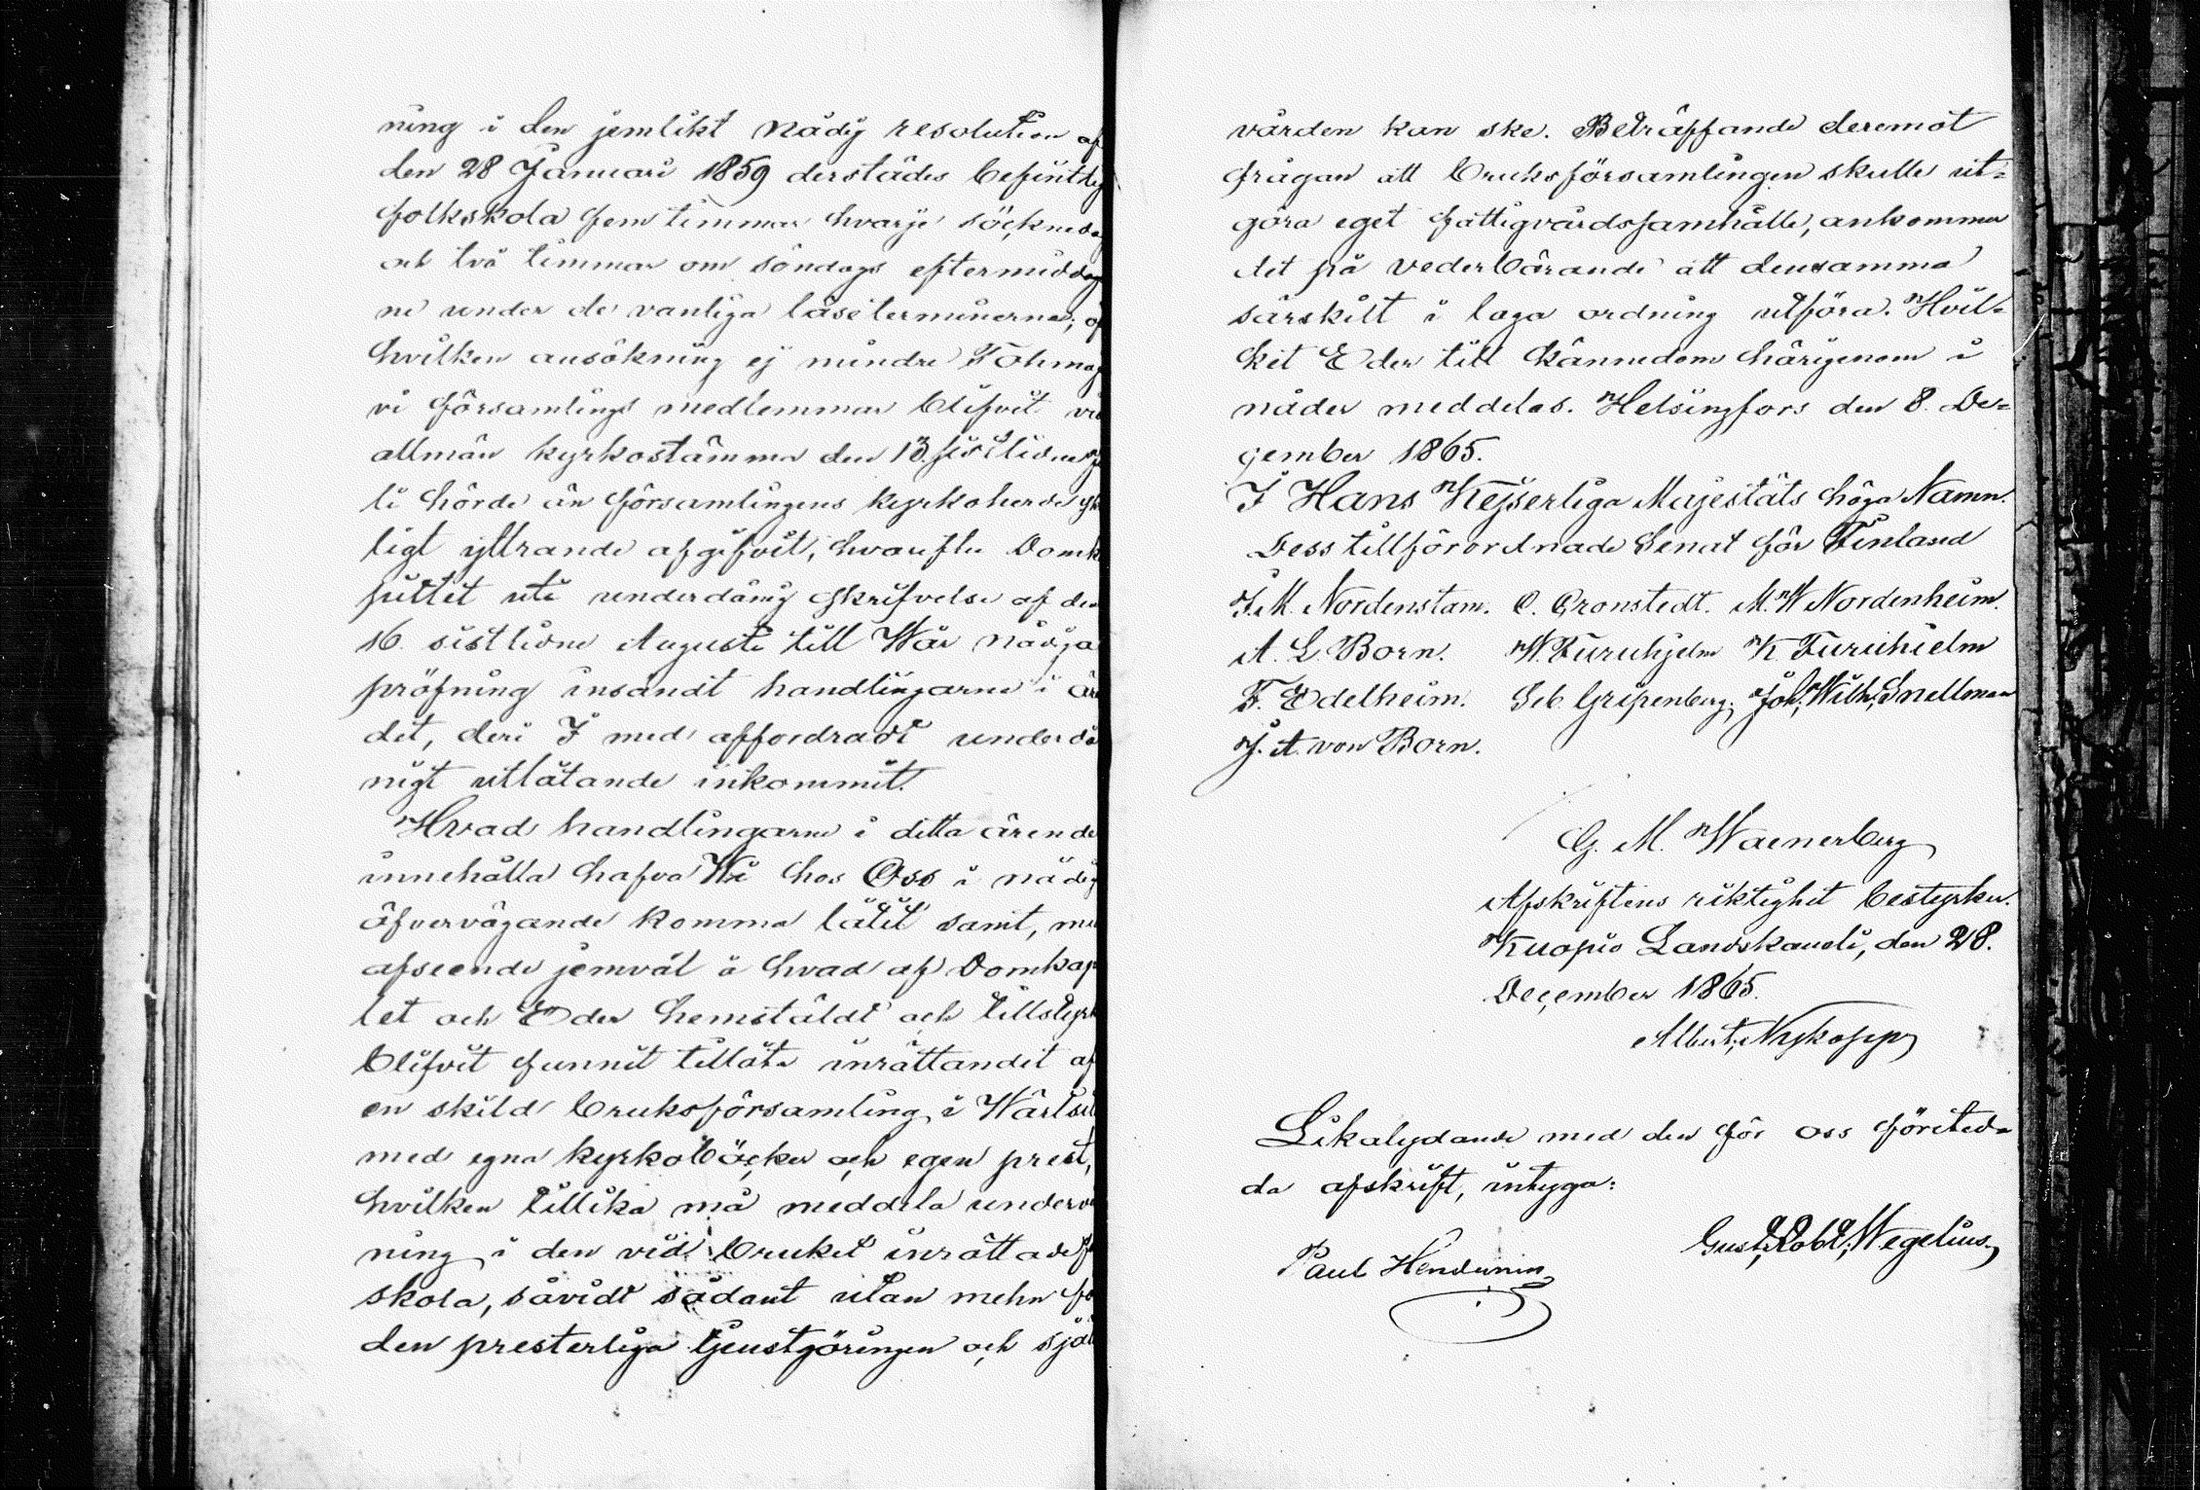 ning i den jemlikt nådig resolution af
den 28 Januari 1859 derstädes befintlig
folkskola fem timmar hvarje söckneda
och två timmar om söndags eftermiddag
ne under de vanliga läseterminerna; öf
hvilken ansökning ej mindre Tohmaj
vi församlings medlemmar blifvit vid
allmän kyrkostämma den 13. sistlidne Ju
li hörde än församlingens kyrkoherde
ligt yttrande afgifvit, hvarefter Domka
pittlet uti underdånig skrifvelse af den
16. sistlidne Augusti till Wår nådiga
pröfning insändt handlingarne i ären
det, deri I med affordradt underdå
nigt utlåtande inkommit.
Hvad handlingarne i detta ärende
innehålla hafva Wi hos Oss i nådig
öfvervägande komma låtit samt, med
afseende jemväl å hvad af Domkap
let och Eder hemstäldt och tillstyrkt
blifvit funnit tillåta inrättandet af
en skild bruksförsamling i Wärtsil
med egna kyrkoböcker och egen prest,
hvilken tillika må meddela underv
ning i den vid bruket inrättade f
skola, såvidt sådant utan mehn fö
den presterliga tjenstgöringen och själ
vården kan ske. Beträffande deremot
frågan att bruksförsamlingen skulle ut-
göra eget fattigvårdssamhälle, ankommer
det på vederbörande att densamma
särskilt i laga ordning utföra. Hvil-
ket Eder till kännedom härigenom i
nåder meddelas. Helsingfors den 8. De-
cember 1865.
I Hans Kejserliga Majestäts höga Namn.
Dess tillförordnade Senat för Finland
J. M. Nordenstam. O. Cronstedt. M. W Nordenheim.
A. L. Born. W. Furuhjelm K Furuhielm
F. Edelheim. Seb. Gripenberg. Joh. Wilh. Snellman
J. A. von Born.
G. M. Waenerberg
Afskriftens riktighet bestyrker.
Kuopio Landskansli, den 28.
December 1865.
Albert Nykopp
Likalydande med den för oss förited-
da afskrift, intyga:
Gust. Robt. Wegelius.
Paul Hendunin